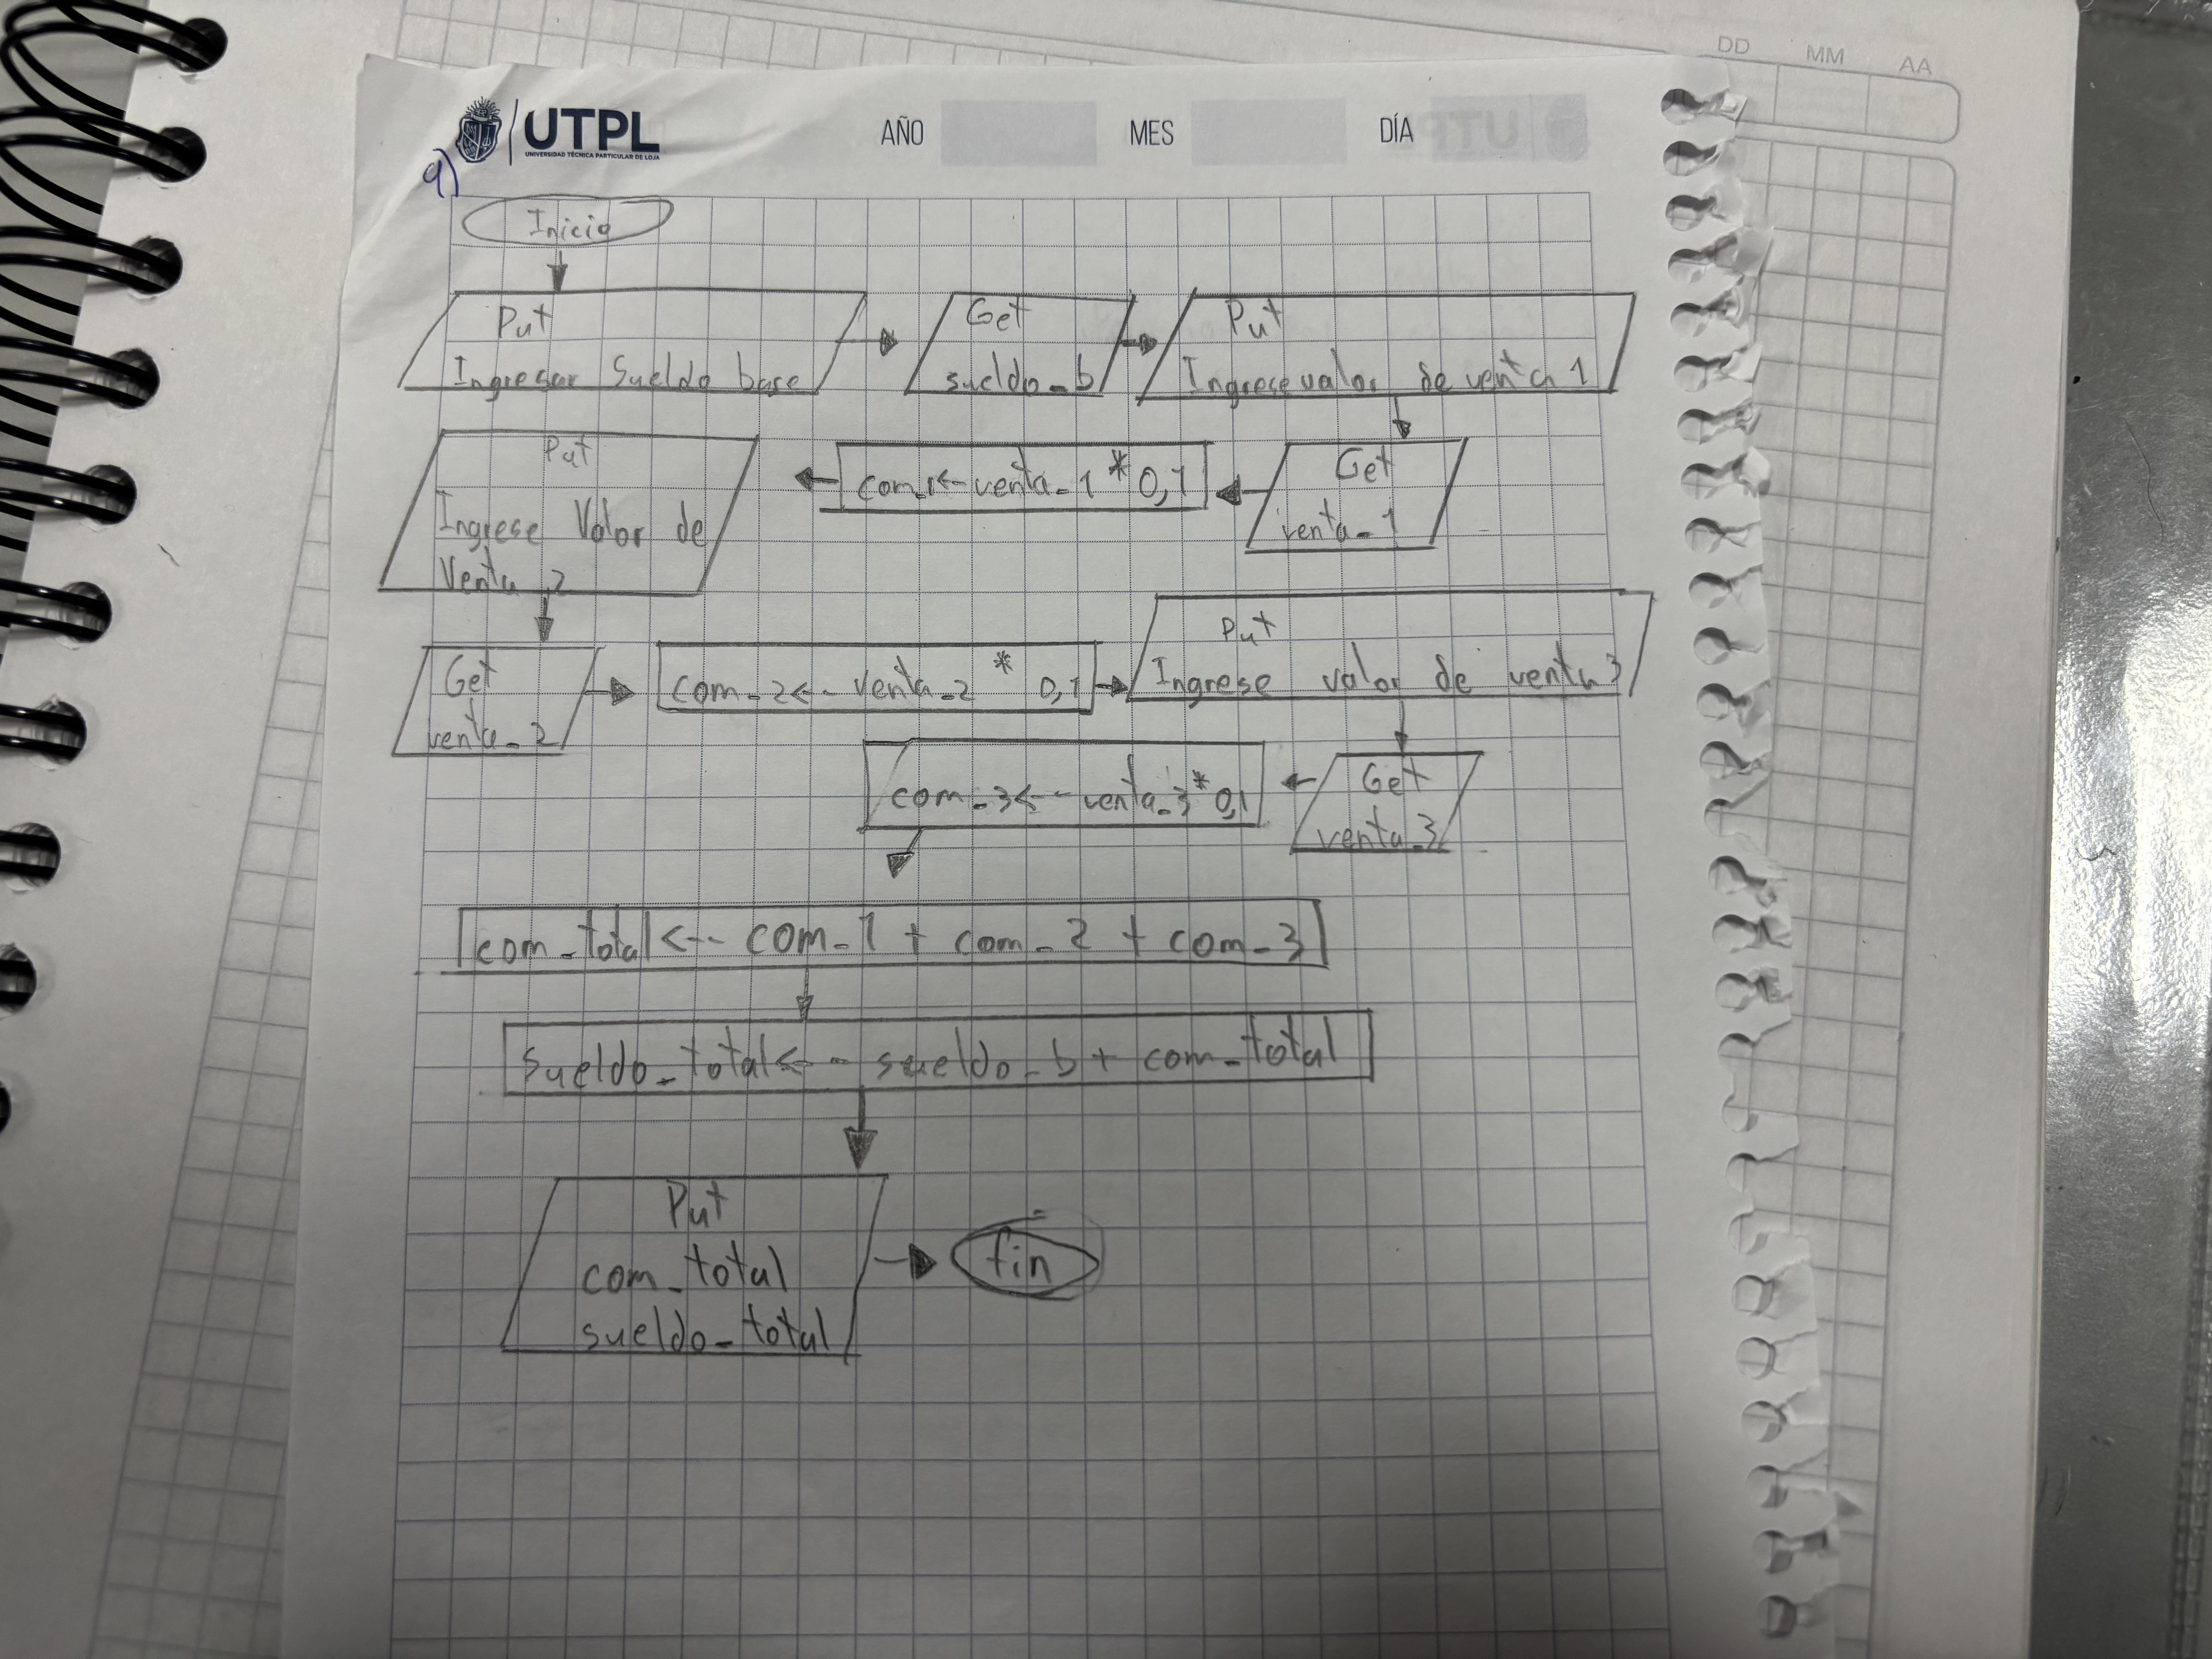 UTPL
UNIVERSIDAD TÉCNICA PARTICULAR DE LOJA
AÑO
MES
DÍA
DD
MM
AA
a)
Inicio
Put
Ingresar Sueldo base
Get
sueldo_b
Put
Ingrese valor de venta 1
Get
venta_1
com_1<--venta_1 * 0,1
Put
Ingrese Valor de
Venta 2
Get
venta_2
com_2<-- venta_2 * 0,1
Put
Ingrese valor de venta 3
Get
venta_3
com_3<-- venta_3 * 0,1
com_total <-- com_1 + com_2 + com_3
Sueldo_total<-- sueldo_b + com_total
Put
com_total
sueldo_total
fin